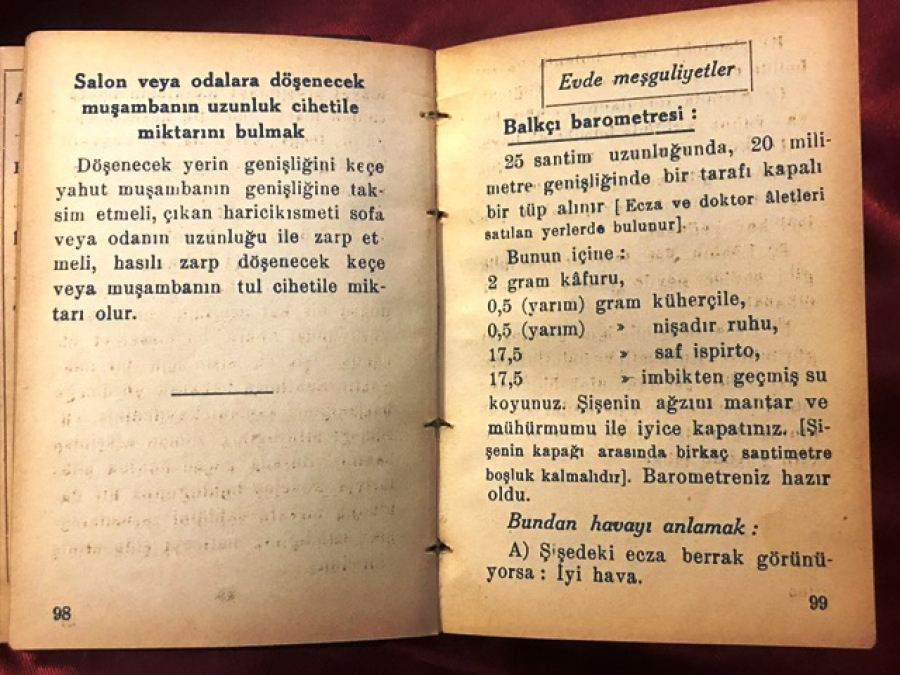 Salon veya odalara döşenecek
muşambanın uzunluk cihetile
miktarını bulmak
Döşenecek yerin genişliğini keçe
yahut muşambanın genişliğine tak-
sim etmeli, çıkan haricikısmeti sofa
veya odanın uzunluğu ile zarp et
meli, hasılı zarp döşenecek keçe
veya muşambanın tul cihetile mik-
tarı olur.
98
Evde meşguliyetler
Balkçı barometresi :
25 santim uzunluğunda, 20 mili-
metre genişliğinde bir tarafı kapalı
bir tüp alınır [ Ecza ve doktor âletleri
satılan yerlerde bulunur].
Bunun içine :
2 gram kâfuru,
0,5 (yarım) gram küherçile,
0,5 (yarım) » nişadır ruhu,
17,5 » saf ispirto,
17,5 » imbikten geçmiş su
koyunuz. Şişenin ağzını mantar ve
mühürmumu ile iyice kapatınız. [Şi-
şenin kapağı arasında birkaç santimetre
boşluk kalmalıdır]. Barometreniz hazır
oldu.
Bundan havayı anlamak :
A) Şişedeki ecza berrak görünü-
yorsa : İyi hava.
99